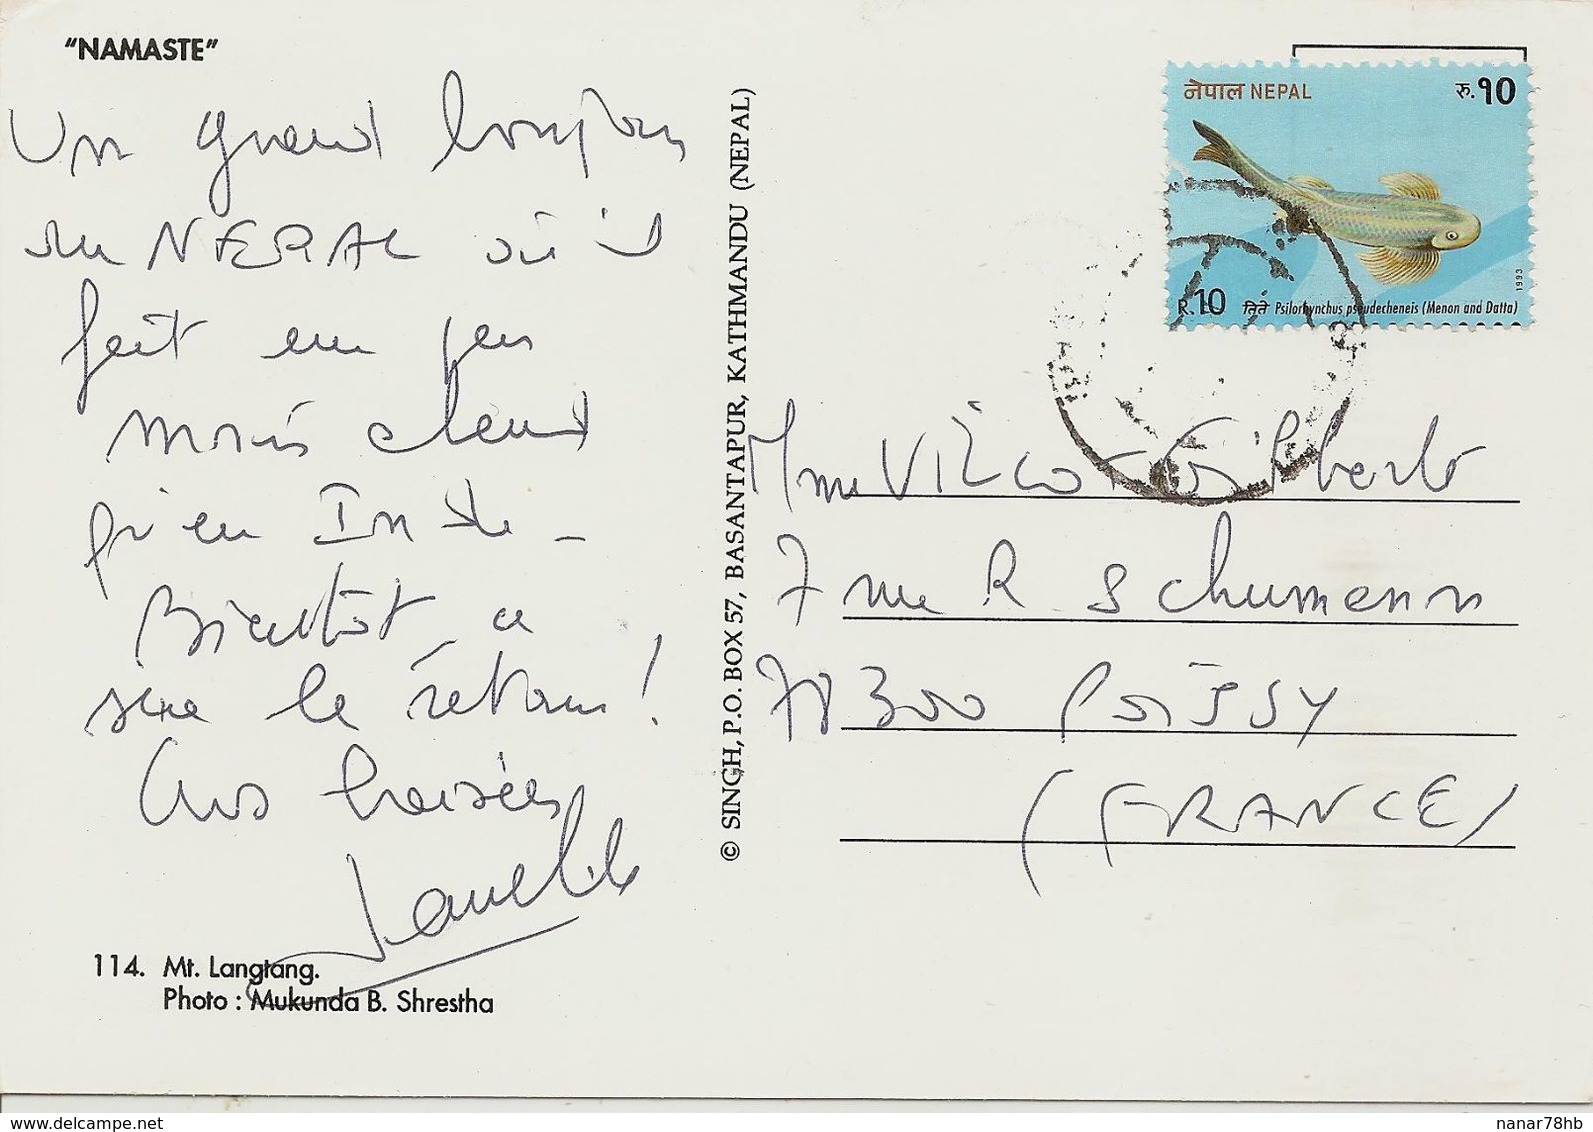 "NAMASTE"
Un grand bonjour
du NEPAL où il
fait un peu
moins chaud
qu'en Inde -
Bientôt ce
sera le retour !
Gros baisers
114. Mt. Langtang.
Photo : Mukunda B. Shrestha
© SINGH, P.O. BOX 57, BASANTAPUR, KATHMANDU (NEPAL)
नेपाल NEPAL रु.१०
1993
R.10 तिते Psilorhynchus pseudecheneis (Menon and Datta)
Mme VILCOT Gilberte
7 rue R Schumann
78300 POISSY
(FRANCE)
www.delcampe.net
nanar78hb